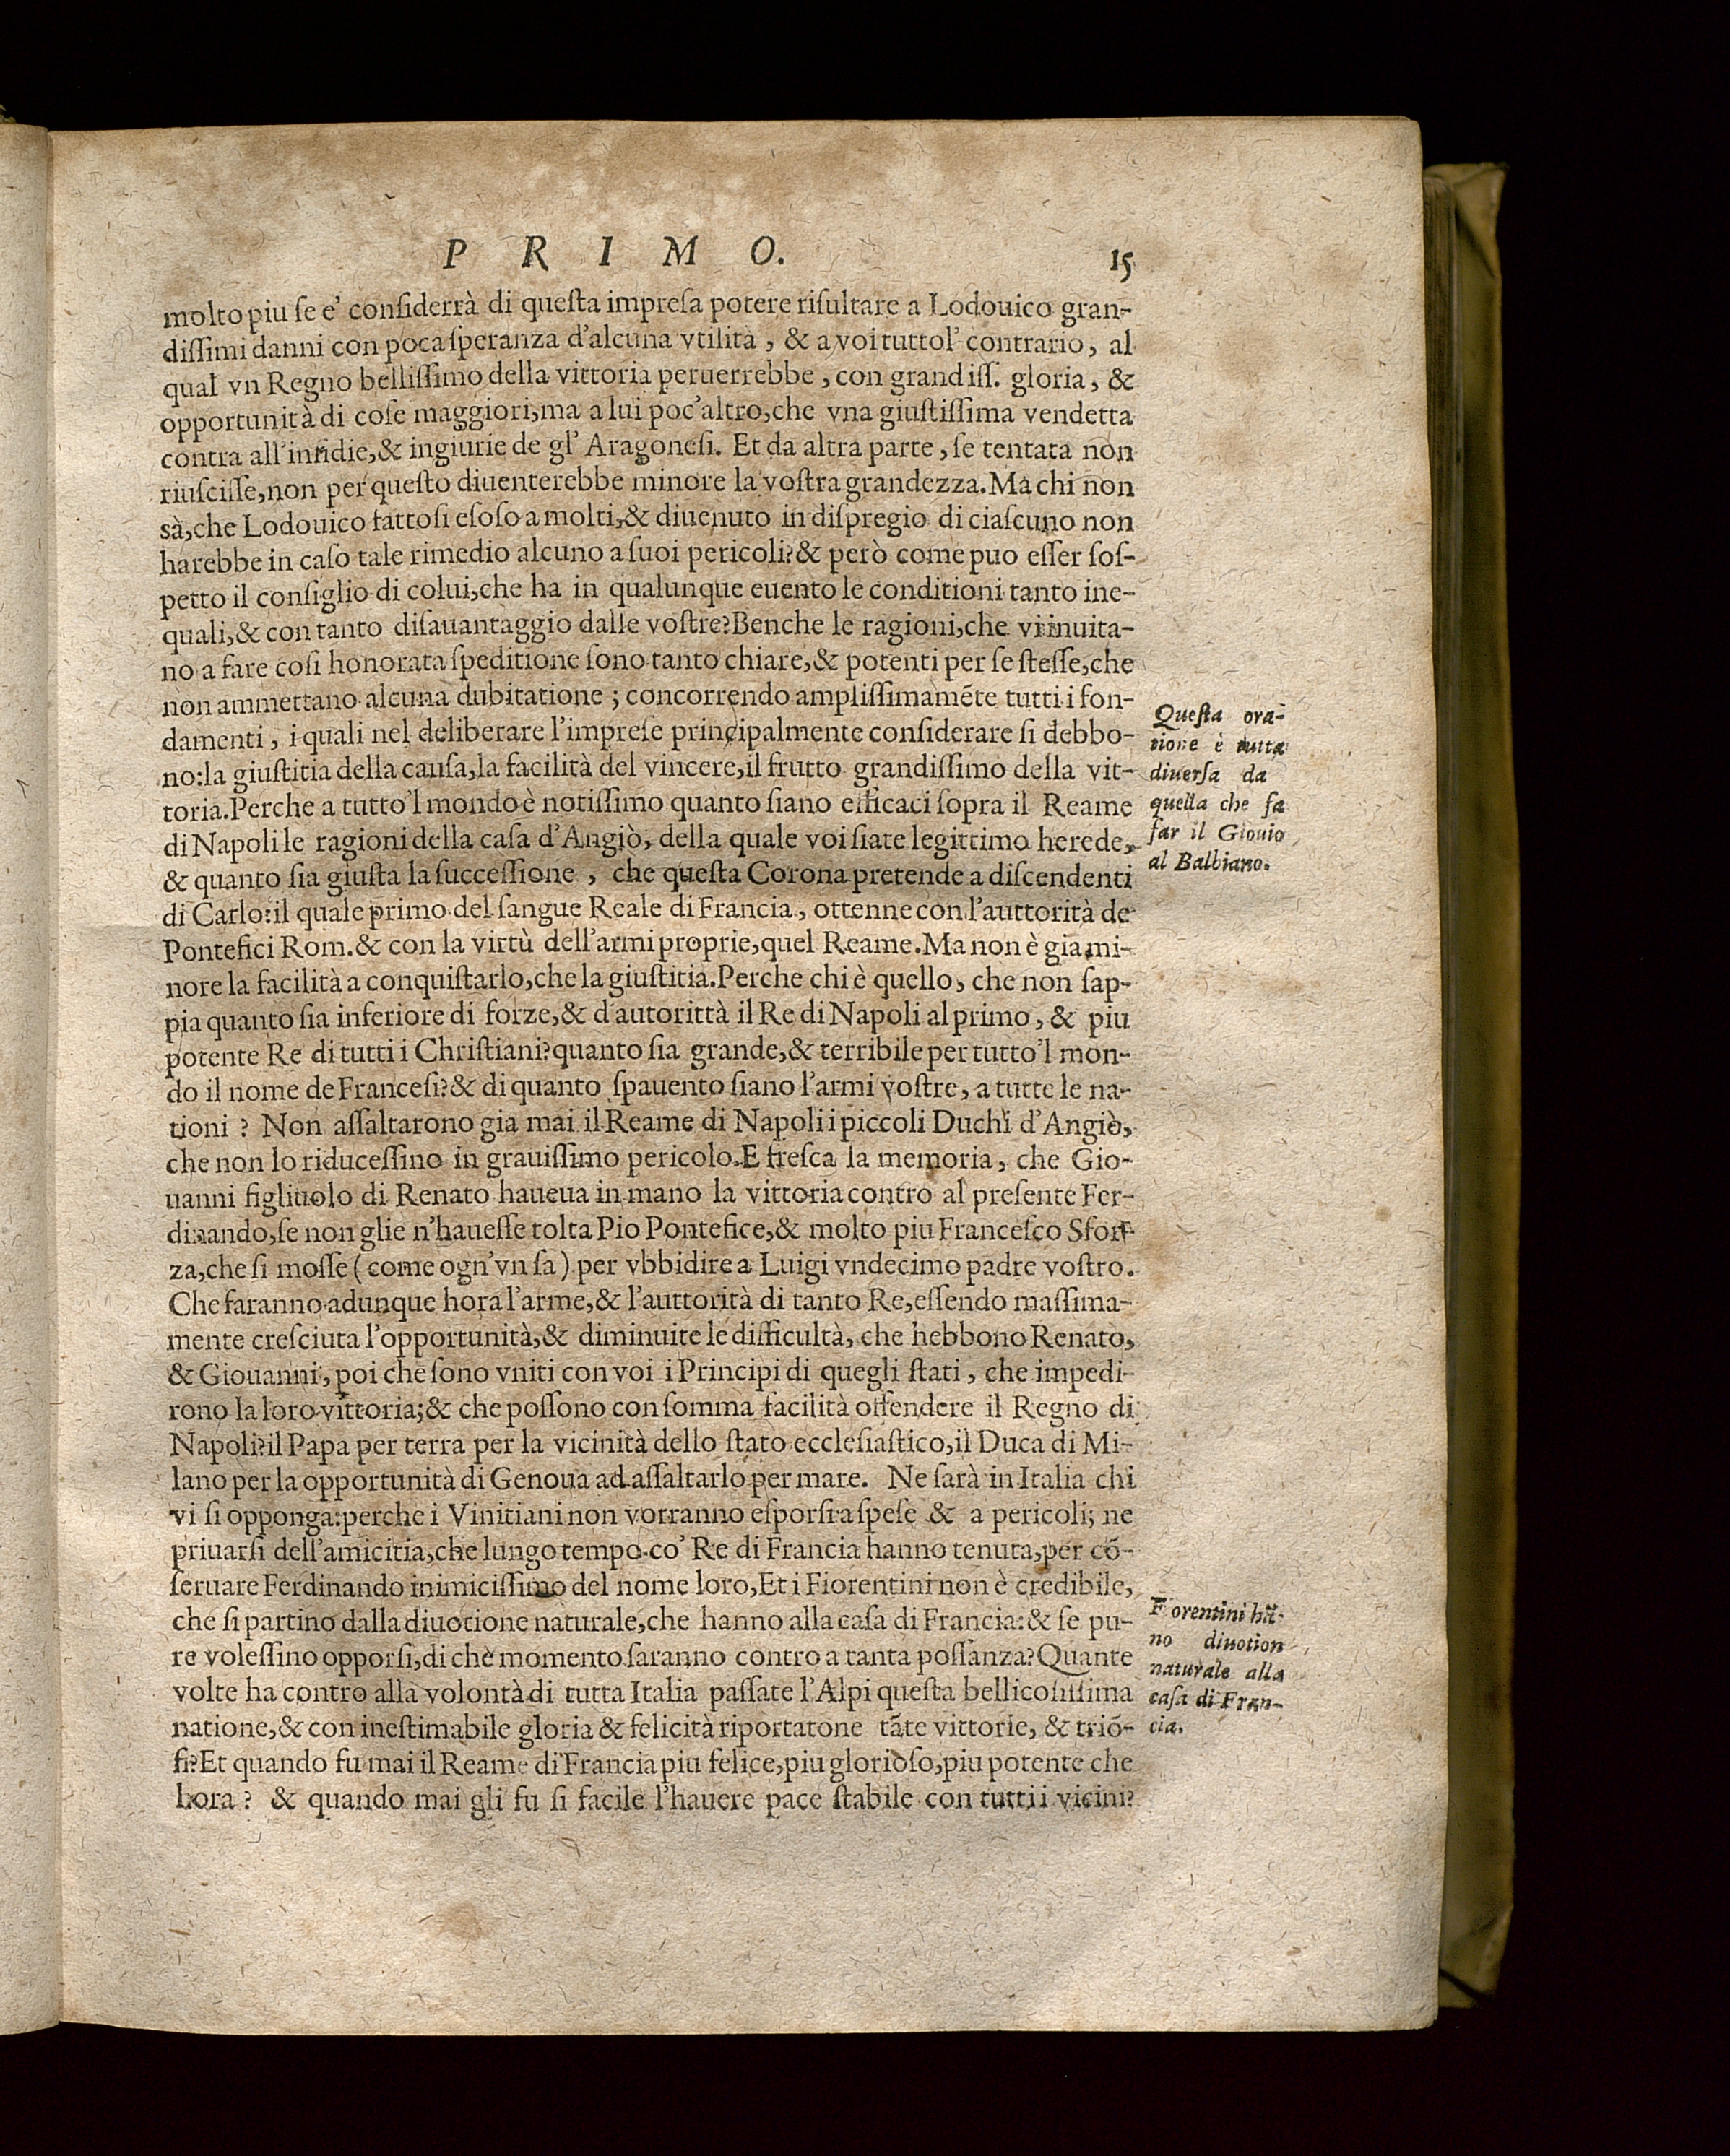 P R I M O. 15
molto piu ſe e' conſiderrà di queſta impreſa potere riſultare a Lodouico gran-
diſſimi danni con poca ſperanza d'alcuna vtilità, & a voi tuttol' contrario, al
qual vn Regno belliſſimo della vittoria peruerrebbe, con grandiſſ. gloria, &
opportunità di coſe maggiori, ma a lui poc'altro, che vna giuſtiſſima vendetta
contra all'inſidie, & ingiurie de gl' Aragoneſi. Et da altra parte, ſe tentata non
riuſciſſe, non per queſto diuenterebbe minore la voſtra grandezza. Ma chi non
sà, che Lodouico fattoſi eſoſo a molti, & diuenuto in diſpregio di ciaſcuno non
harebbe in caſo tale rimedio alcuno a ſuoi pericoli? & però come puo eſſer ſoſ-
petto il conſiglio di colui, che ha in qualunque euento le conditioni tanto ine-
quali, & con tanto diſauantaggio dalle voſtre? Benche le ragioni, che vi inuita-
no a fare coſi honorata ſpeditione ſono tanto chiare, & potenti per ſe ſteſſe, che
non ammettano alcuna dubitatione; concorrendo ampliſſimamẽte tutti i fon-
damenti, i quali nel deliberare l'impreſe principalmente conſiderare ſi debbo-
no: la giuſtitia della cauſa, la facilità del vincere, il frutto grandiſſimo della vit-
toria. Perche a tutto'l mondo è notiſſimo quanto ſiano efficaci ſopra il Reame
di Napoli le ragioni della caſa d'Angiò, della quale voi ſiate legittimo herede,
& quanto ſia giuſta la ſucceſſione, che queſta Corona pretende a diſcendenti
di Carlo: il quale primo del ſangue Reale di Francia, ottenne con l'auttorità de
Pontefici Rom. & con la virtù dell'armi proprie, quel Reame. Ma non è gia mi-
nore la facilità a conquiſtarlo, che la giuſtitia. Perche chi è quello, che non ſap-
pia quanto ſia inferiore di forze, & d'autorittà il Re di Napoli al primo, & piu
potente Re di tutti i Chriſtiani? quanto ſia grande, & terribile per tutto'l mon-
do il nome de Franceſi? & di quanto ſpauento ſiano l'armi voſtre, a tutte le na-
tioni? Non aſſaltarono gia mai il Reame di Napoli i piccoli Duchi d'Angiò,
che non lo riduceſſino in grauiſſimo pericolo. E freſca la memoria, che Gio-
uanni figliuolo di Renato haueua in mano la vittoria contro al preſente Fer-
dinando, ſe non glie n'haueſſe tolta Pio Pontefice, & molto piu Franceſco Sfor-
za, che ſi moſſe (come ogn'vn ſa) per vbbidire a Luigi vndecimo padre voſtro.
Che faranno adunque hora l'arme, & l'auttorità di tanto Re, eſſendo maſſima-
mente creſciuta l'opportunità, & diminuite le difficultà, che hebbono Renato,
& Giouanni, poi che ſono vniti con voi i Principi di quegli ſtati, che impedi-
rono la loro vittoria; & che poſſono con ſomma facilità offendere il Regno di
Napoli? il Papa per terra per la vicinità dello ſtato eccleſiaſtico, il Duca di Mi-
lano per la opportunità di Genoua ad aſſaltarlo per mare. Ne ſarà in Italia chi
vi ſi opponga: perche i Vinitiani non vorranno eſporſi a ſpeſe & a pericoli; ne
priuarſi dell'amicitia, che lungo tempo co' Re di Francia hanno tenuta, per cõ-
ſeruare Ferdinando inimiciſſimo del nome loro, Et i Fiorentini non è credibile,
che ſi partino dalla diuotione naturale, che hanno alla caſa di Francia: & ſe pu-
re voleſſino opporſi, di che momento ſaranno contro a tanta poſſanza? Quante
volte ha contro alla volontà di tutta Italia paſſate l'Alpi queſta bellicoſiſſima
natione, & con ineſtimabile gloria & felicità riportatone tãte vittorie, & triõ-
fi? Et quando fu mai il Reame di Francia piu felice, piu glorioſo, piu potente che
hora? & quando mai gli fu ſi facile l'hauere pace ſtabile con tutti i vicini?
Queſta ora-
tione è tutta
diuerſa da
quella che fa
far il Giouio
al Balbiano.
Fiorentini hã-
no diuotion
naturale alla
caſa di Fran-
cia.